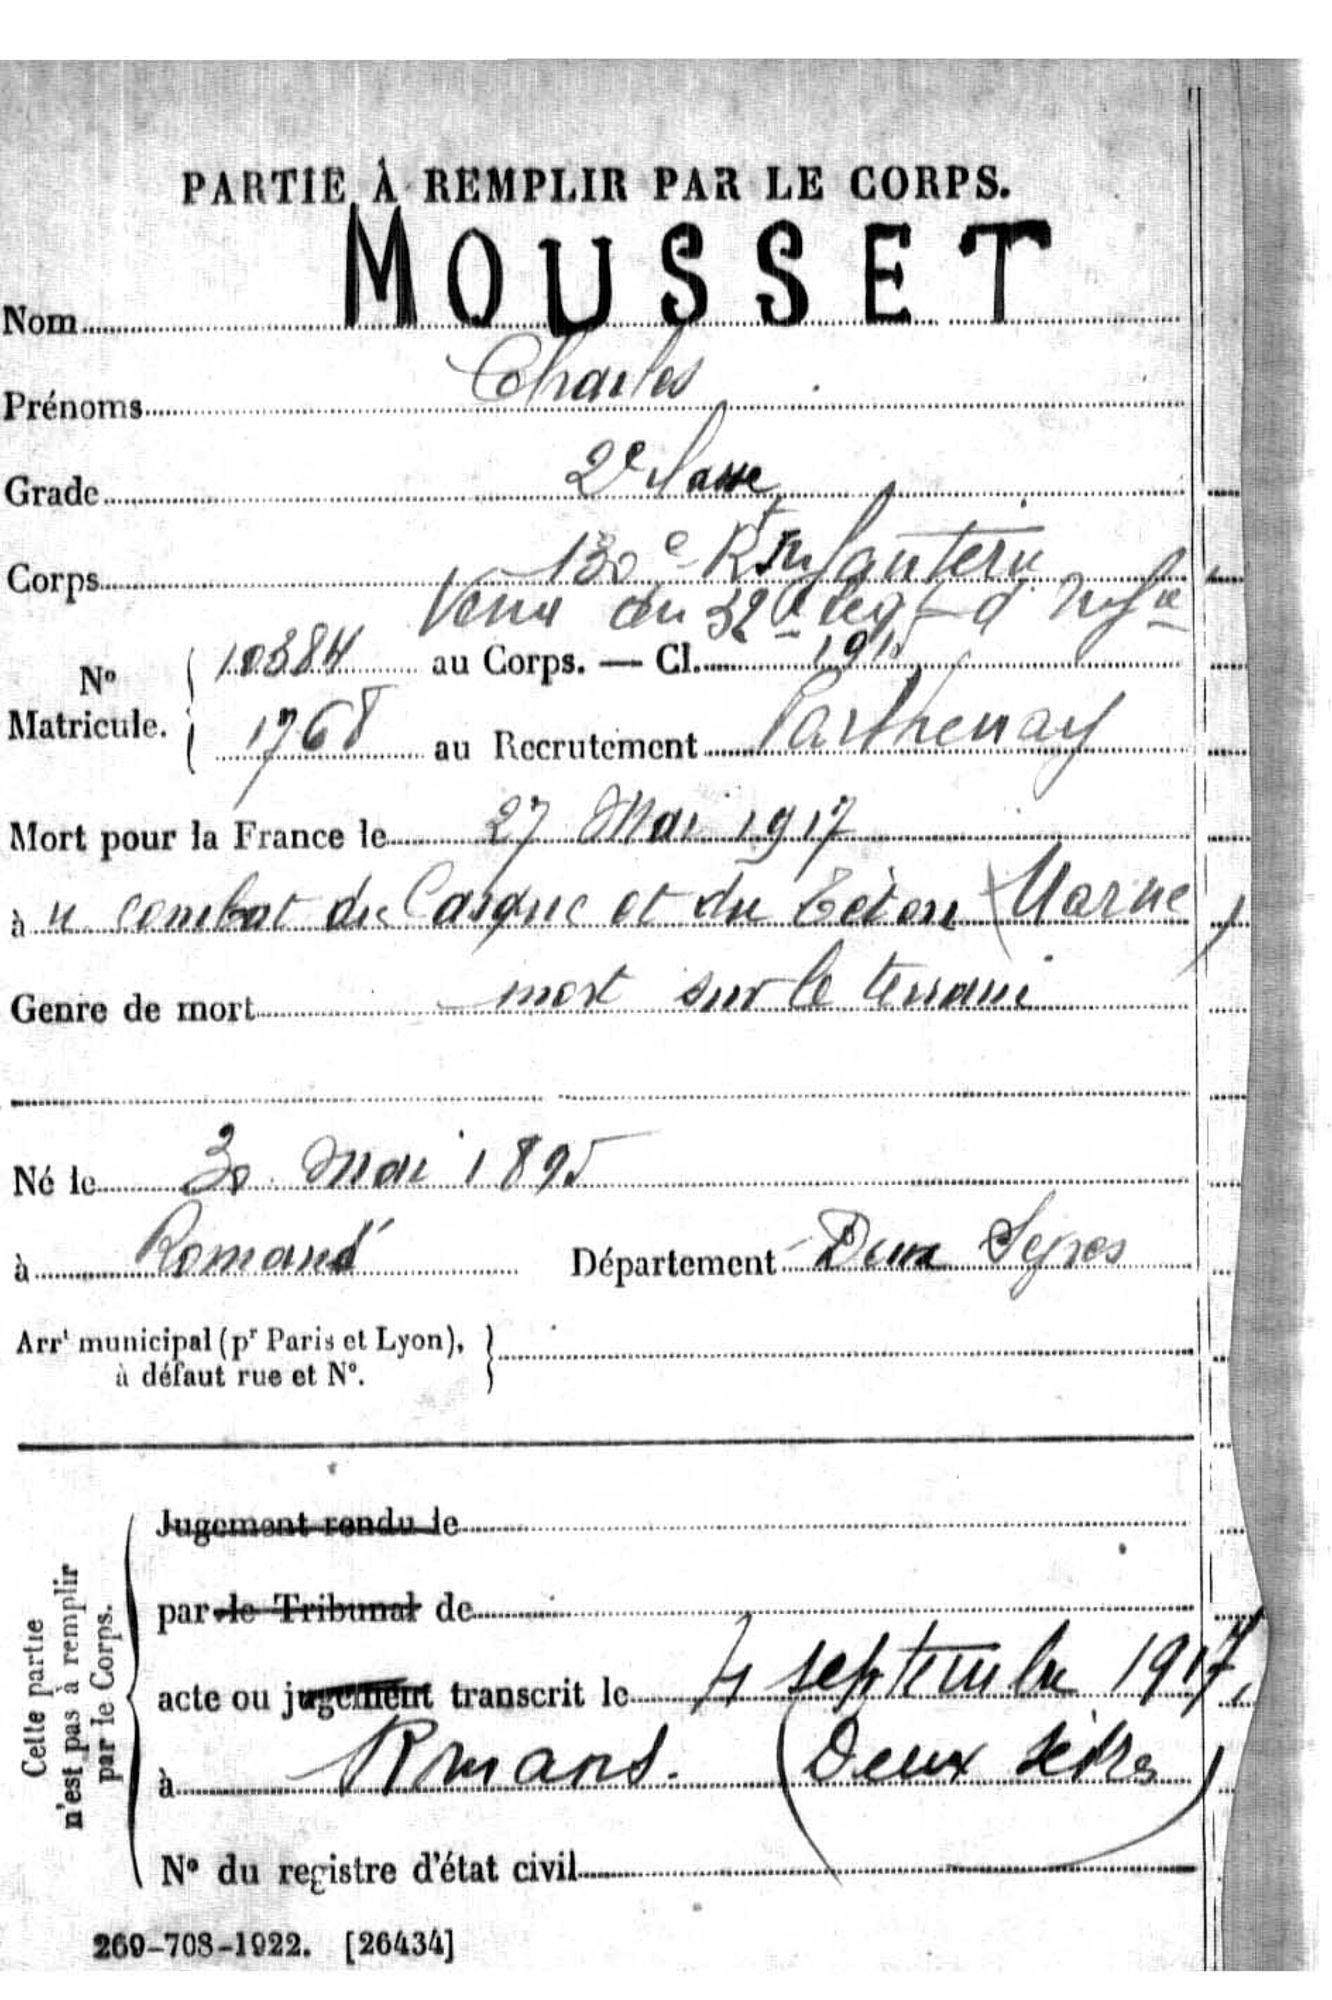 PARTIE À REMPLIR PAR LE CORPS.
Nom MOUSSET
Prénoms Charles
Grade 2e classe
Corps 130e Rt Infanterie
Venu du 32e Regt d'Infie
No Matricule. 10384 au Corps. — Cl. 1915
1768 au Recrutement Parthenay
Mort pour la France le 27 Mai 1917
à u combat du Casque et du Téton (Marne)
Genre de mort mort sur le terrain
Né le 30 Mai 1895
à Romans Département Deux Sèvres
Arrt municipal (pr Paris et Lyon),
à défaut rue et No.
Cette partie
n'est pas à remplir
par le Corps.
Jugement rendu le
par le Tribunal de
acte ou jugement transcrit le 4 septembre 1917,
à Romans. (Deux Sèvres)
No du registre d'état civil
269-708-1922. [26434]